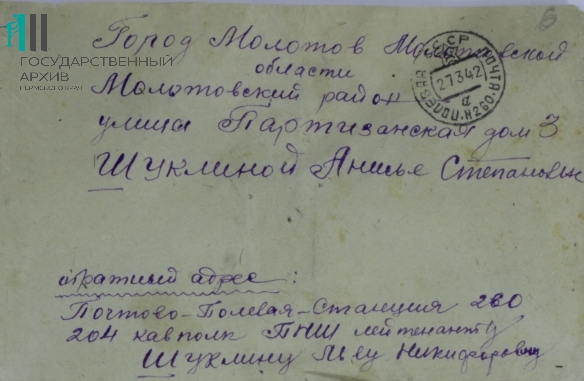 ГОСУДАРСТВЕННЫЙ
АРХИВ
ПЕРМСКОГО КРАЯ
6
Город Молотов Молотовской
области
Молотовский район
улица Партизанская дом 3
Шуклиной Анисье Степановне
СССР
27.3.42
ПОЧТА-О №260
обратный адрес:
Почтово-Полевая-Станция 260
204 кавполк ПНШ лейтенанту
Шуклину Никифоровичу